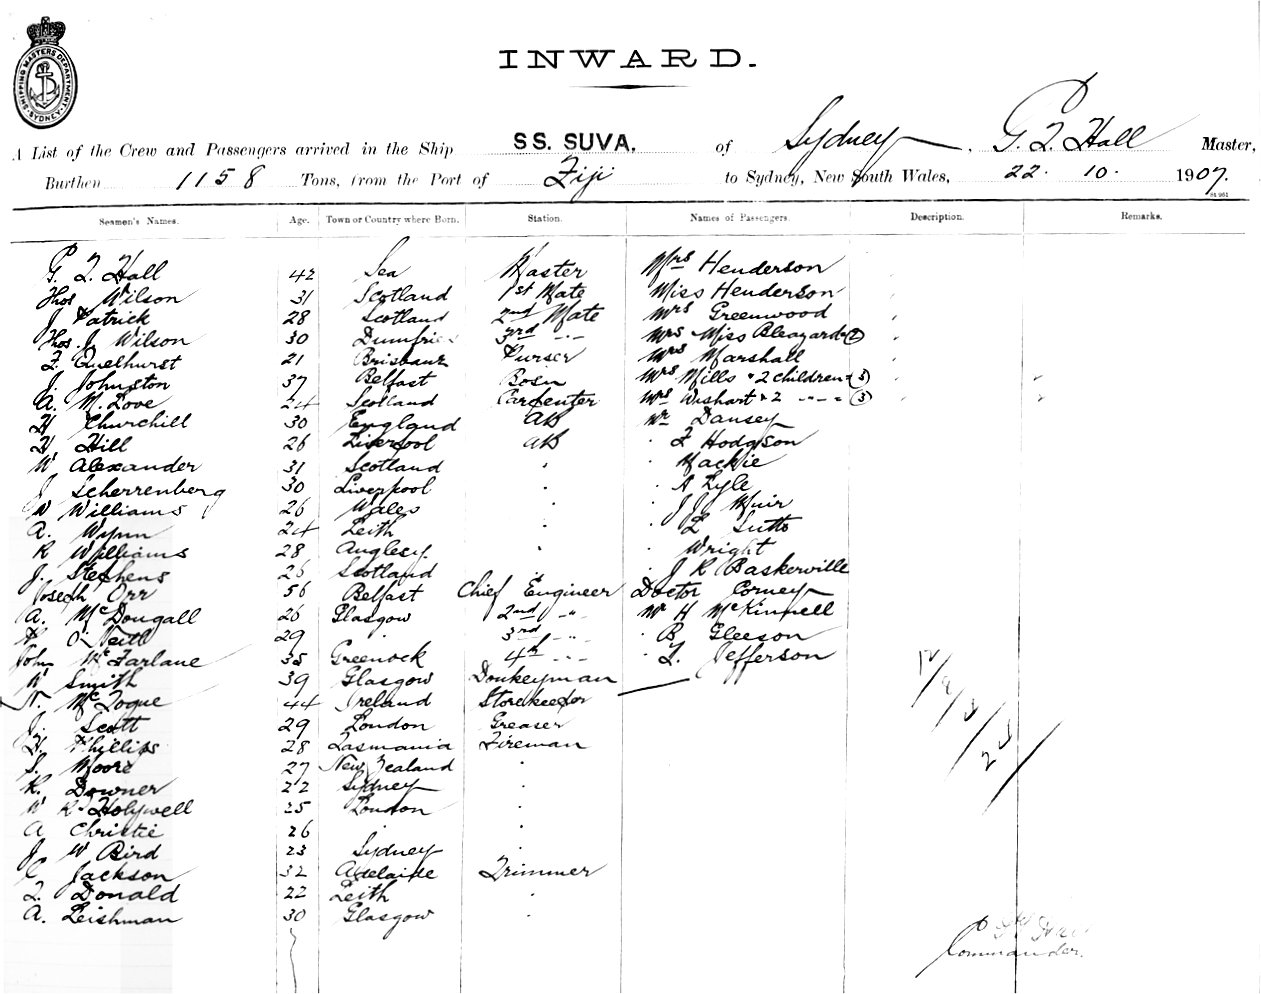 SHIPPING MASTERS DEPARTMENT SYDNEY
INWARD.
A List of the Crew and Passengers arrived in the Ship SS. SUVA. of Sydney, G. F. Hall Master,
Burthen 1158 Tons, from the Port of Fiji to Sydney, New South Wales, 22. 10. 1907.
Seamen's Names. Age. Town or Country where Born. Station. Names of Passengers. Description. Remarks.
G F Hall 42 Sea Master Mrs Henderson
Thos Wilson 31 Scotland 1st Mate Miss Henderson
J Patrick 28 Scotland 2nd Mate Mrs Greenwood
Thos. J Wilson 30 Dumfries 3rd -..- Mrs & Miss Bleazard (2)
F. Quelhurst 21 Brisbane Purser Mrs Marshall
J. Johnston 37 Belfast Bosn Mrs Mills & 2 children (3)
A. M. Love 24 Scotland Carpenter Mrs Wishart & 2 -..- (3)
H Churchill 30 England AB Mr Dansey
H Hill 26 Liverpool AB . F Hodgson
W Alexander 31 Scotland . . Mackie
J Scherrenberg 30 Liverpool . . A Lyle
W Williams 26 Wales . . J J Muir
A. Wynn 24 Leith . . L Sutto
R Williams 28 Anglesy. . . Wright
J. Stephens 26 Scotland . . J R Baskerville
Joseph Orr 56 Belfast Chief Engineer Doctor Corney
A. McDougall 26 Glasgow 2nd -..- Mr H McKinnell
O'Neill 29 . 3rd -..- . B Gleeson
John McFarlane 35 Greenock 4th -..- . T. Jefferson
W Smith 39 Glasgow Donkeyman
N. McTogue 44 Ireland Storekeeper
J. Scott 29 London Greaser
H. Phillips 28 Tasmania Fireman
S. Moore 27 New Zealand .
R. Downer 22 Sydney .
W R Holywell 25 London .
A Christie 26 . .
J W Bird 23 Sydney .
C Jackson 32 Adelaide Trimmer
F. Donald 22 Leith .
A. Leishman 30 Glasgow .
Commander.